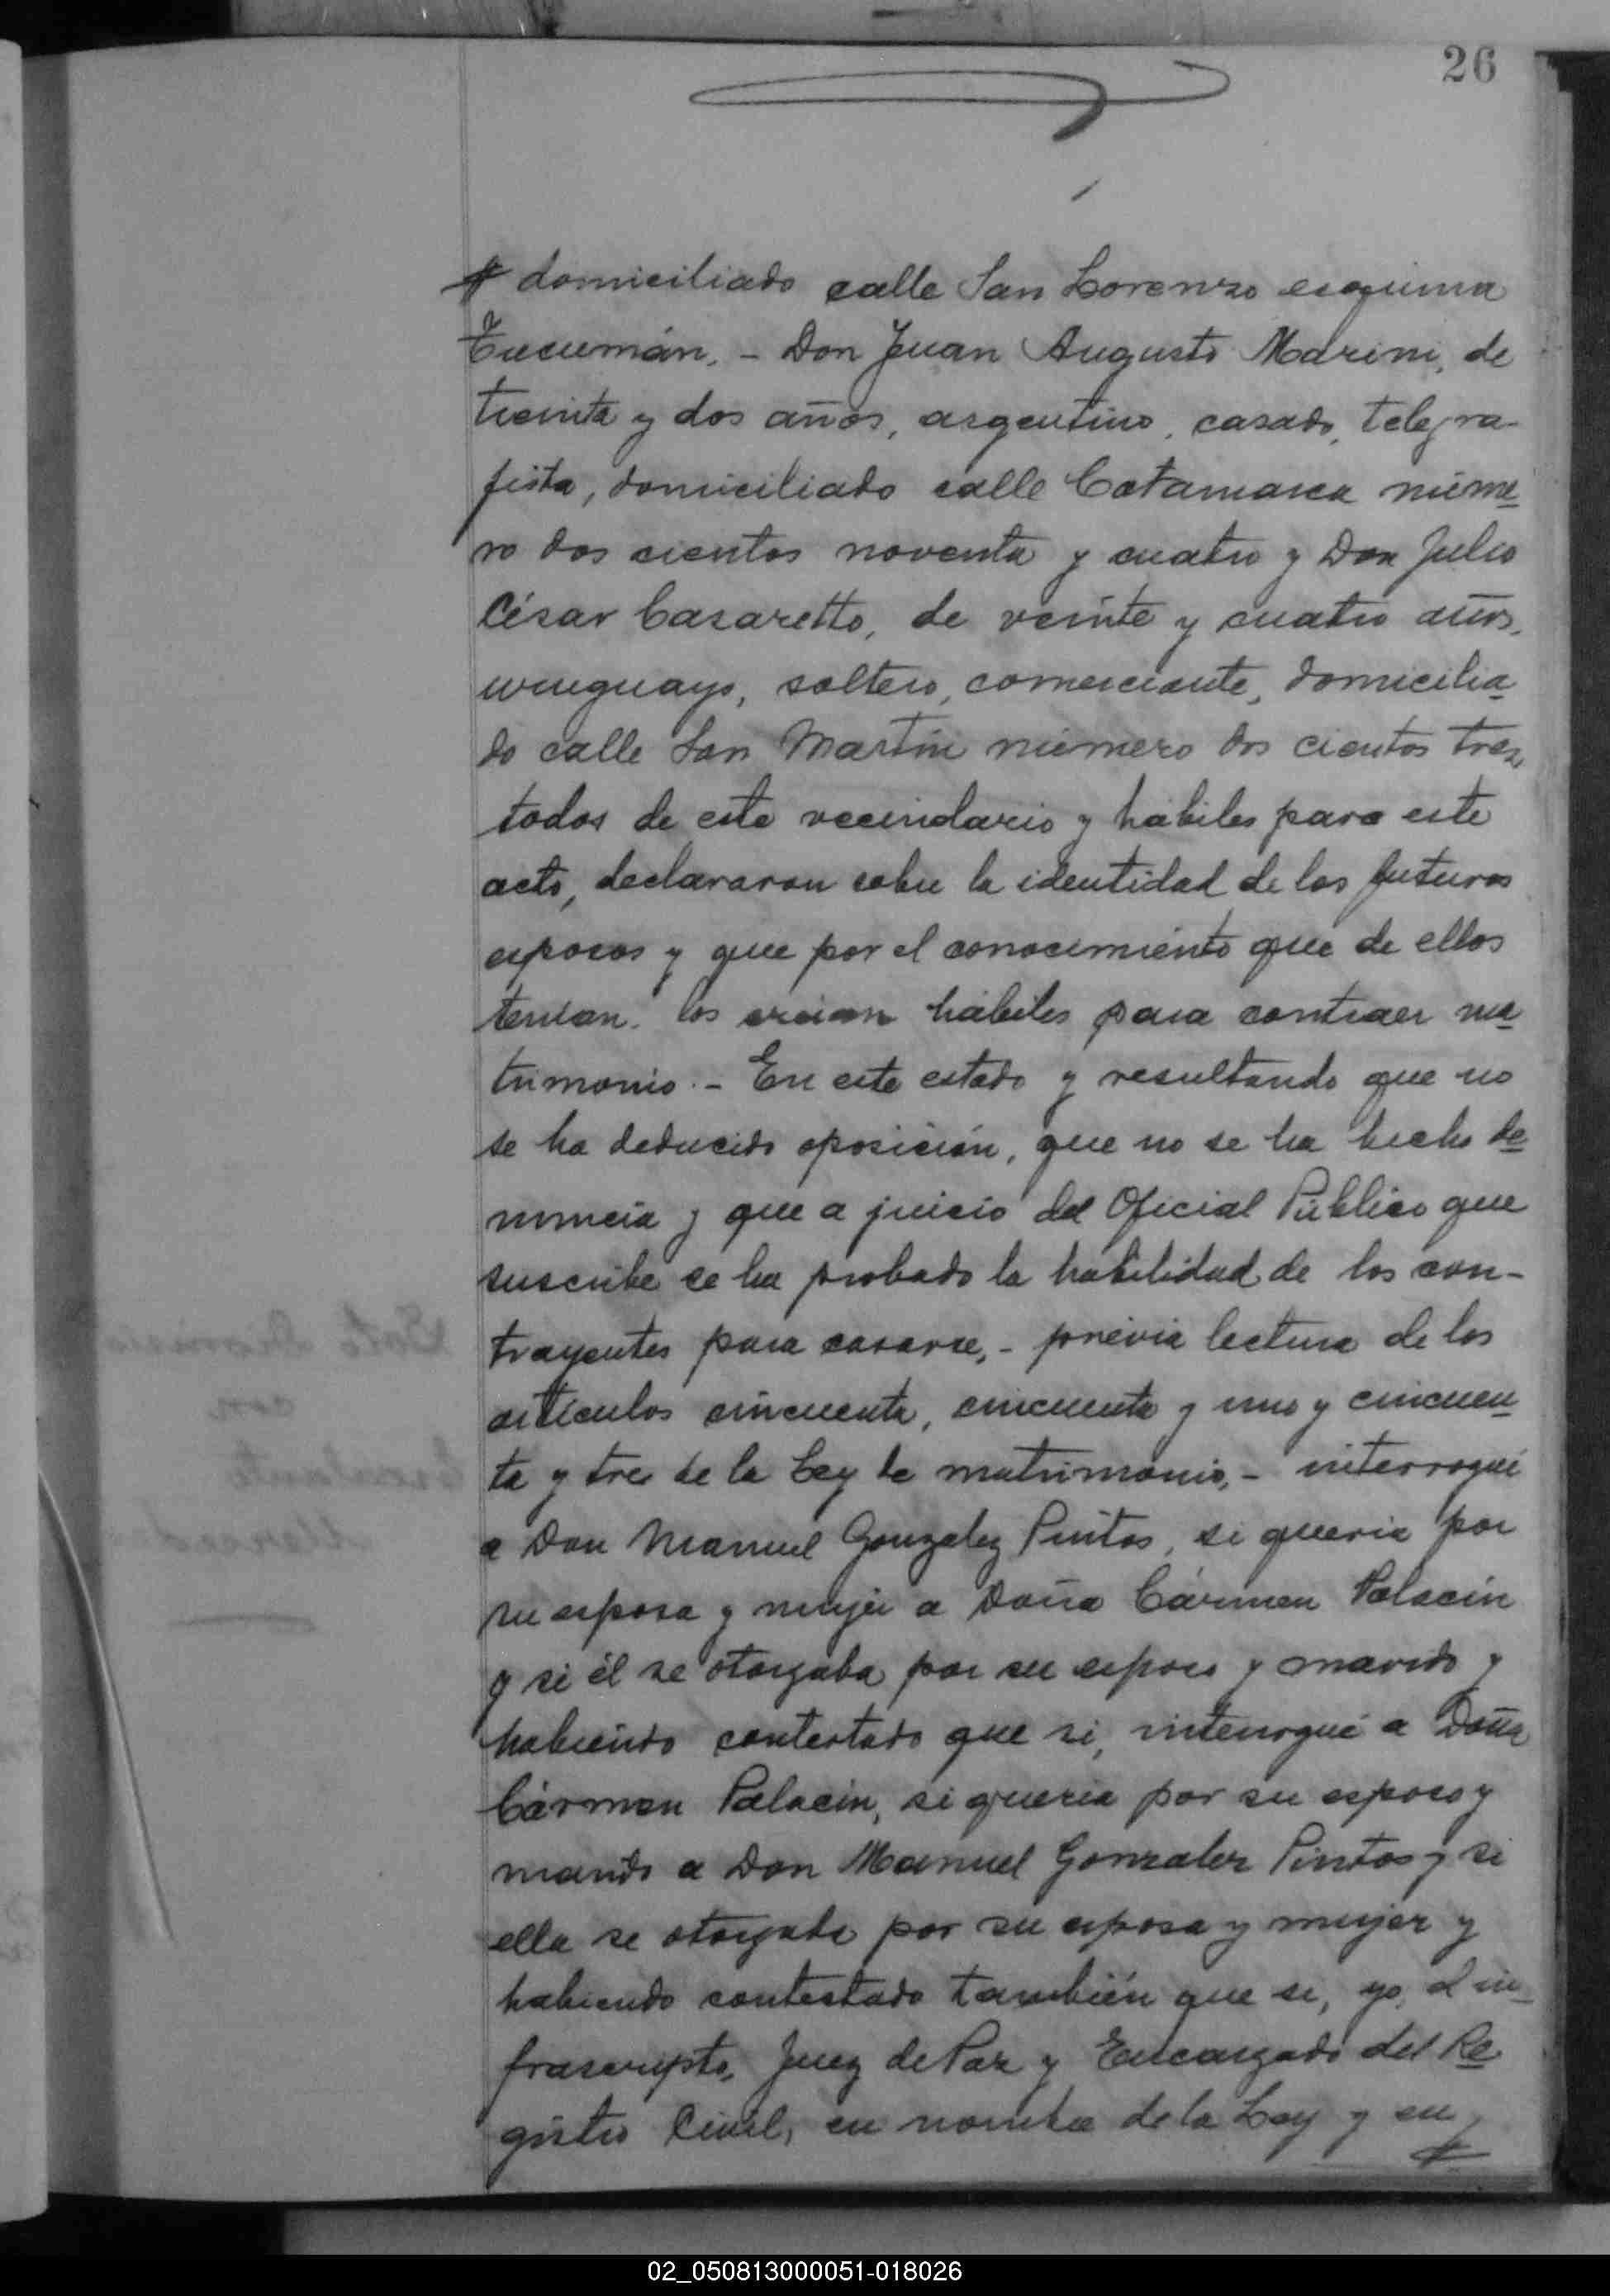 26
# domiciliado calle San Lorenzo esquina
Tucumán. - Don Juan Augusto Marini, de
treinta y dos años, argentino, casado, telegra-
fista, domiciliado calle Catamarca núme
ro dos cientos noventa y cuatro y Don Julio
César Casaretto, de veinte y cuatro años,
uruguayo, soltero, comerciante, domicilia
do calle San Martín número dos cientos tres,
todos de este vecindario y hábiles para este
acto, declararon sobre la identidad de los futuros
esposos y que por el conocimiento que de ellos
tenían, los creian hábiles para contraer ma
trimonio. - En este estado y resultando que no
se ha deducido oposición, que no se ha hecho de
nuncia y que a juicio del Oficial Público que
suscribe se ha probado la habilidad de los con-
trayentes para casarse, - previa lectura de los
artículos cincuenta, cincuenta y uno y cincuen
ta y tres de la Ley de matrimonio, - interrogué
a Don Manuel Gonzalez Pintos, si queria por
su esposa y mujer a Doña Cármen Palacin
y si él se otorgaba por su esposo y marido y
habiendo contestado que si, interrogué a Doña
Cármen Palacin, si queria por su esposo y
marido a Don Manuel Gonzalez Pintos y si
ella se otorgaba por su esposa y mujer y
habiendo contestado también que si, yo, el in-
frascripto, Juez de Paz y Encargado del Re
gistro Civil, en nombre de la Ley y en
#
02_050813000051-018026